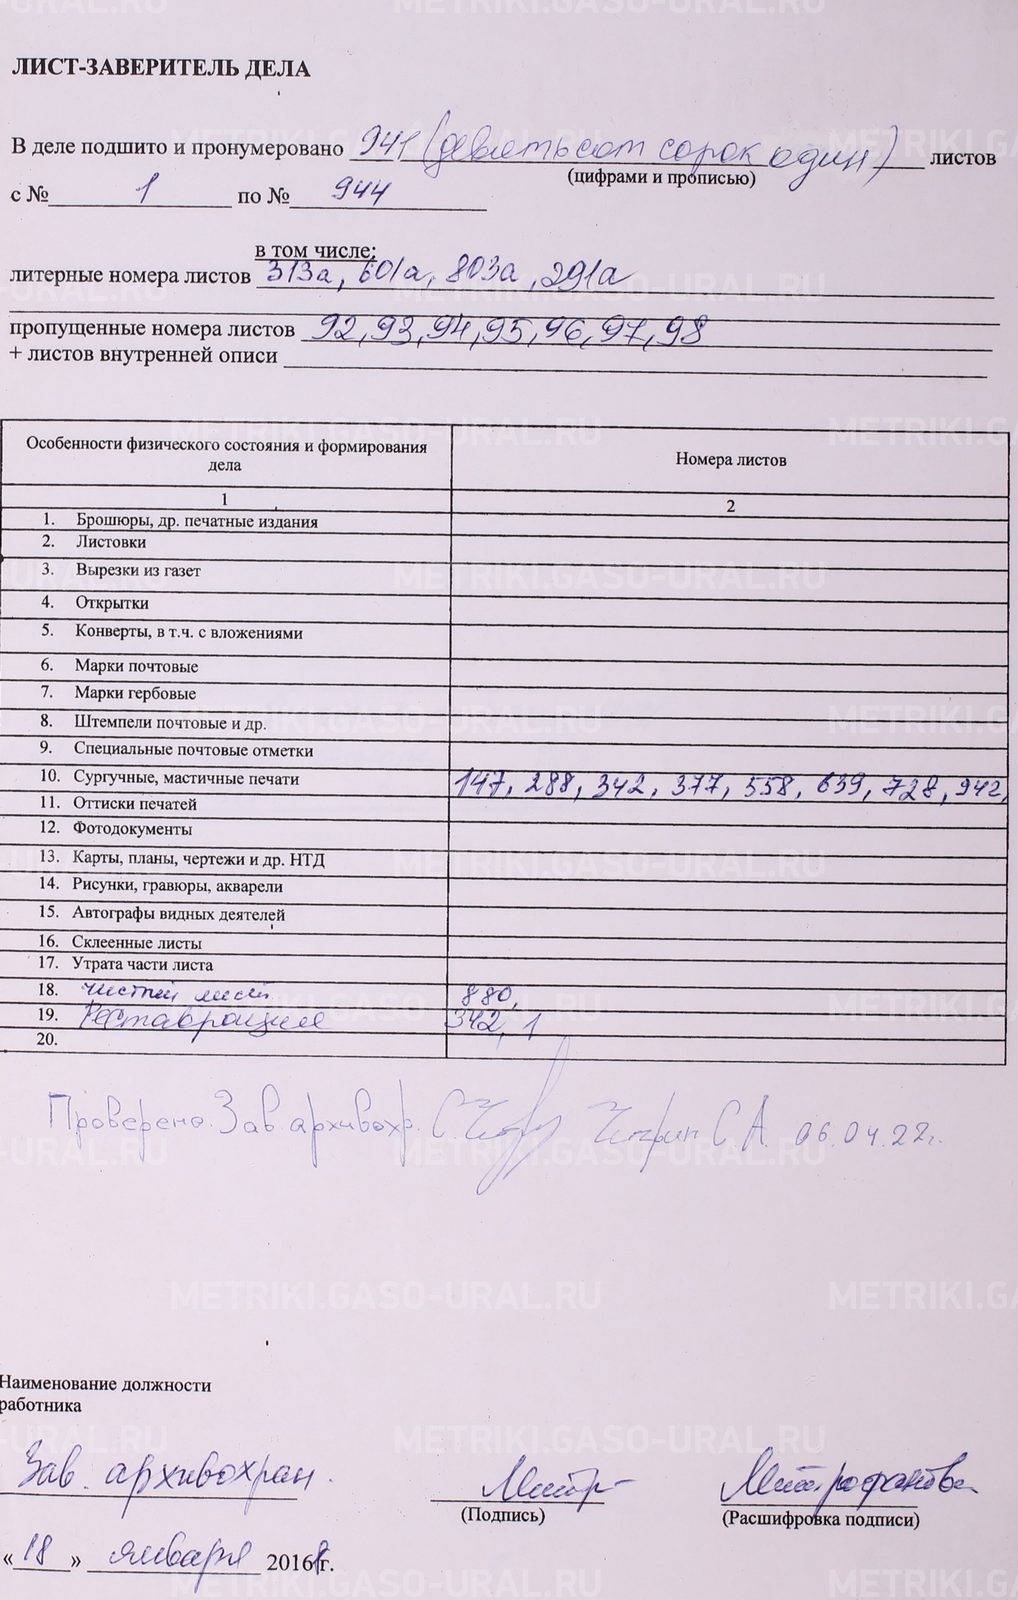 METRIKI.GASO-URAL.RU
ЛИСТ-ЗАВЕРИТЕЛЬ ДЕЛА
В деле подшито и пронумеровано 941 (девятьсот сорок один) листов
(цифрами и прописью)
с № 1 по № 944
в том числе:
литерные номера листов 313а, 601а, 803а, 291а
пропущенные номера листов 92, 93, 94, 95, 96, 97, 98
+ листов внутренней описи
Особенности физического состояния и формирования дела Номера листов
1 2
1. Брошюры, др. печатные издания
2. Листовки
3. Вырезки из газет
4. Открытки
5. Конверты, в т.ч. с вложениями
6. Марки почтовые
7. Марки гербовые
8. Штемпели почтовые и др.
9. Специальные почтовые отметки
10. Сургучные, мастичные печати 147, 288, 342, 377, 558, 639, 728, 942,
11. Оттиски печатей
12. Фотодокументы
13. Карты, планы, чертежи и др. НТД
14. Рисунки, гравюры, акварели
15. Автографы видных деятелей
16. Склеенные листы
17. Утрата части листа
18. чистый лист 880,
19. Реставрация 342, 1
20.
Проверено. Зав. архивохр. С.А. 06.04.22г.
Наименование должности
работника
Зав. архивохран. Митр Митрофанова
(Подпись) (Расшифровка подписи)
«18» января 201 г.